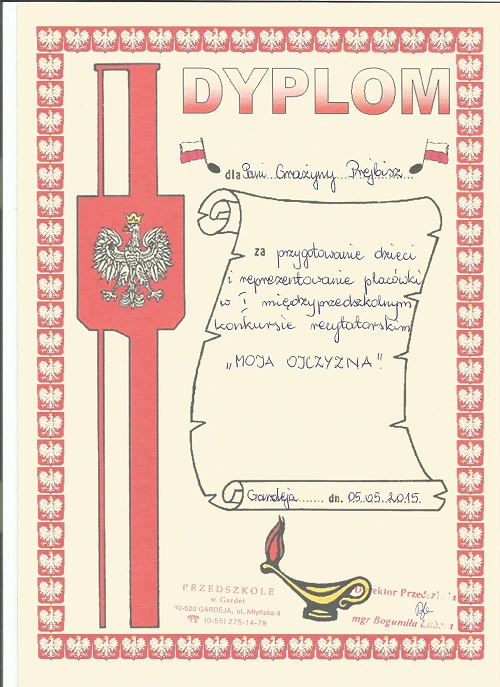 DYPLOM
dla Pani Grażyny Prejbisz
za przygotowanie dzieci
i reprezentowanie placówki
w I międzyprzedszkolnym
konkursie recytatorskim
„MOJA OJCZYZNA”.
Gardeja........ dn. 05.05.2015.
PRZEDSZKOLE
w Gardei
82-520 GARDEJA, ul. Młyńska 4
☎ (0-55) 275-14-79
Dyrektor
mgr Bogumiła